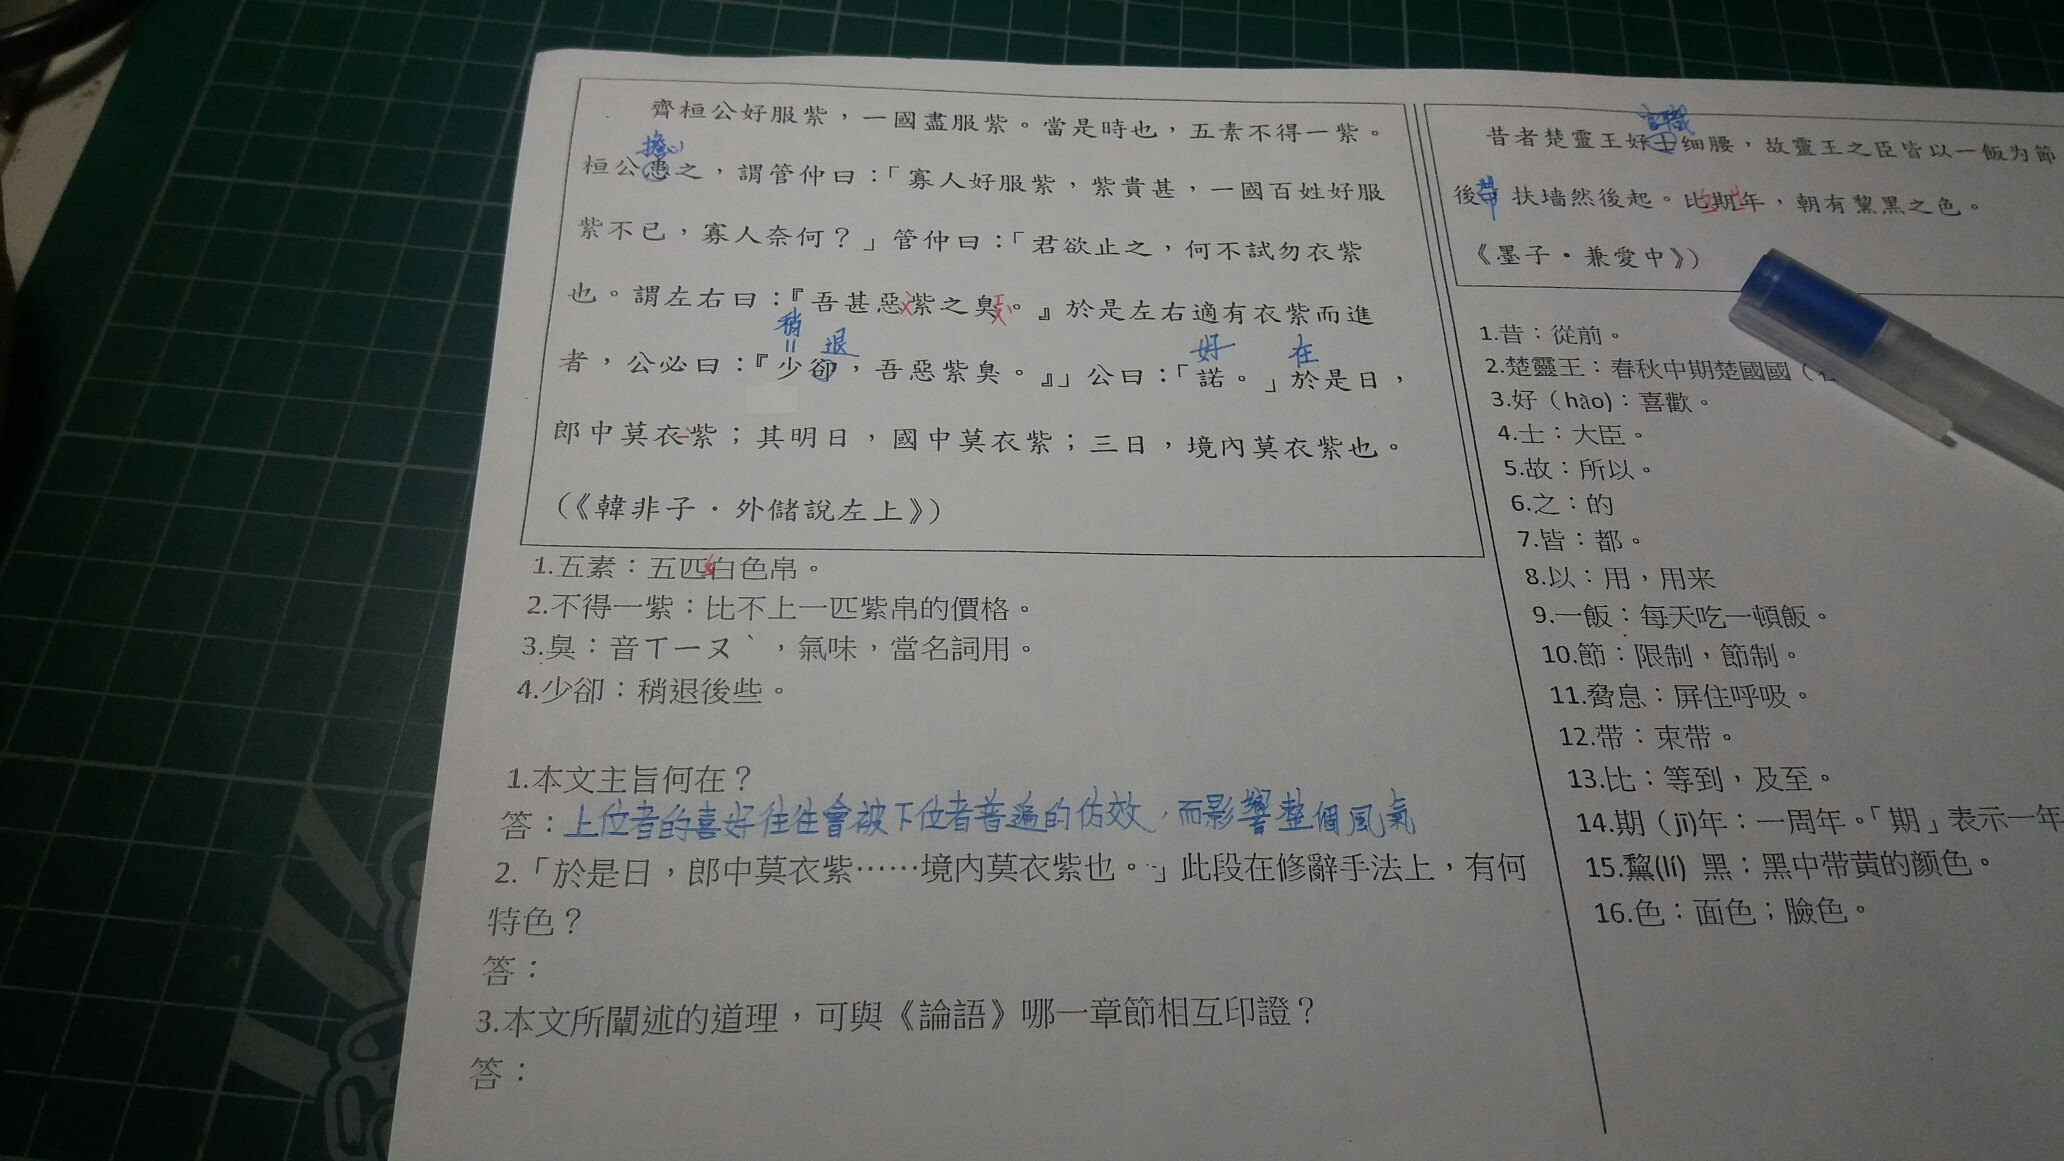 齊桓公好服紫，一國盡服紫。當是時也，五素不得一紫。
擔心
桓公患之，謂管仲曰：「寡人好服紫，紫貴甚，一國百姓好服
紫不已，寡人奈何？」管仲曰：「君欲止之，何不試勿衣紫
也。謂左右曰：『吾甚惡紫之臭。』於是左右適有衣紫而進
稍 退 好 在
者，公必曰：『少卻，吾惡紫臭。』」公曰：「諾。」於是日，
郎中莫衣紫；其明日，國中莫衣紫；三日，境內莫衣紫也。
（《韓非子·外儲說左上》）
1.五素：五匹白色帛。
2.不得一紫：比不上一匹紫帛的價格。
3.臭：音ㄒㄧㄡˋ，氣味，當名詞用。
4.少卻：稍退後些。
1.本文主旨何在？
答：上位者的喜好往往會被下位者普遍的仿效，而影響整個風氣
2.「於是日，郎中莫衣紫……境內莫衣紫也。」此段在修辭手法上，有何
特色？
答：
3.本文所闡述的道理，可與《論語》哪一章節相互印證？
答：
官職
昔者楚靈王好士细腰，故靈王之臣皆以一飯为節
後帶 扶墙然後起。比期年，朝有黧黑之色。
《墨子·兼愛中》）
1.昔：從前。
2.楚靈王：春秋中期楚國國（
3.好（hào)：喜歡。
4.士：大臣。
5.故：所以。
6.之：的
7.皆：都。
8.以：用，用来
9.一飯：每天吃一頓飯。
10.節：限制，節制。
11.脅息：屏住呼吸。
12.带：束带。
13.比：等到，及至。
14.期（jī)年：一周年。「期」表示一年
15.黧(lí) 黑：黑中带黄的颜色。
16.色：面色；臉色。